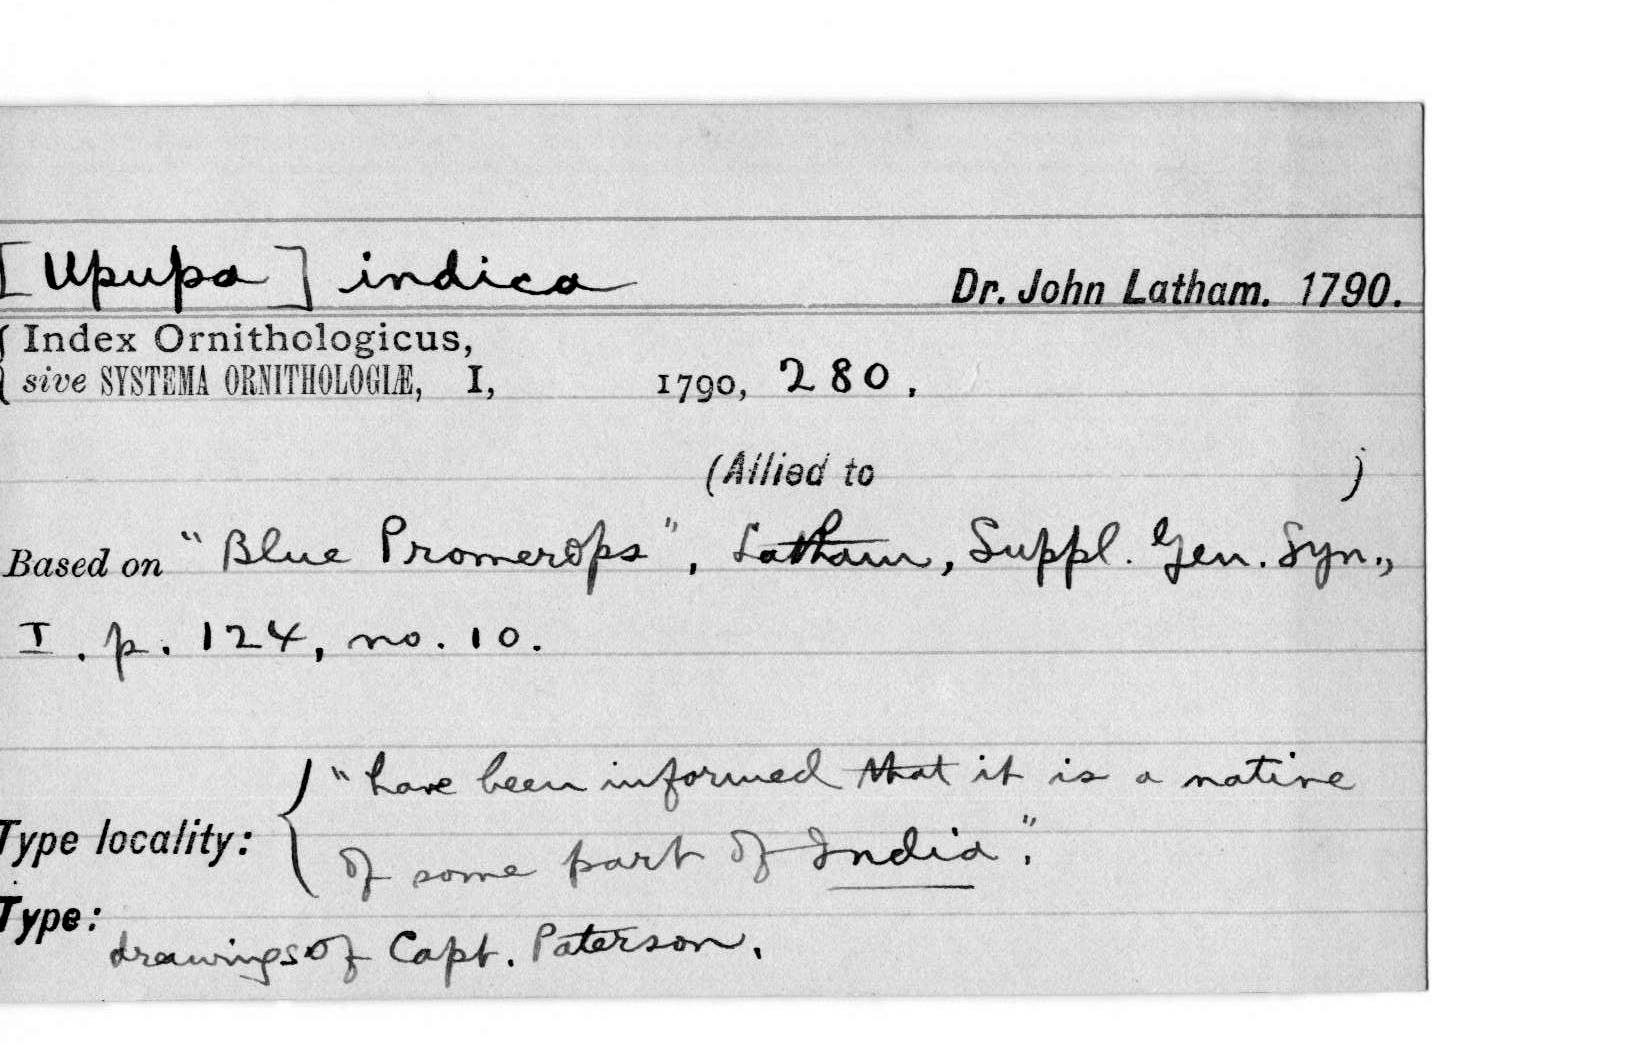 [Upupa] indica Dr. John Latham. 1790.
Index Ornithologicus,
sive SYSTEMA ORNITHOLOGIÆ, I, 1790, 280.
(Allied to )
Based on "Blue Promerops", Latham, Suppl. Gen. Syn.,
I. p. 124, no. 10.
"have been informed that it is a native
Type locality:
of some part of India".
Type:
drawings of Capt. Paterson.